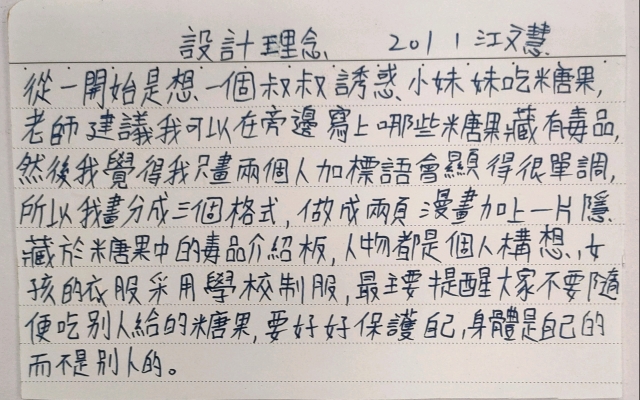 設計理念 2011 江文慧
從一開始是想一個叔叔誘惑小妹妹吃糖果,
老師建議我可以在旁邊寫上哪些糖果藏有毒品,
然後我覺得我只畫兩個人加標語會顯得很單調,
所以我畫分成三個格式,做成兩頁漫畫加上一片隱
藏於糖果中的毒品介紹板,人物都是個人構想,女
孩的衣服采用學校制服,最主要提醒大家不要隨
便吃別人給的糖果,要好好保護自己,身體是自己的
而不是別人的。